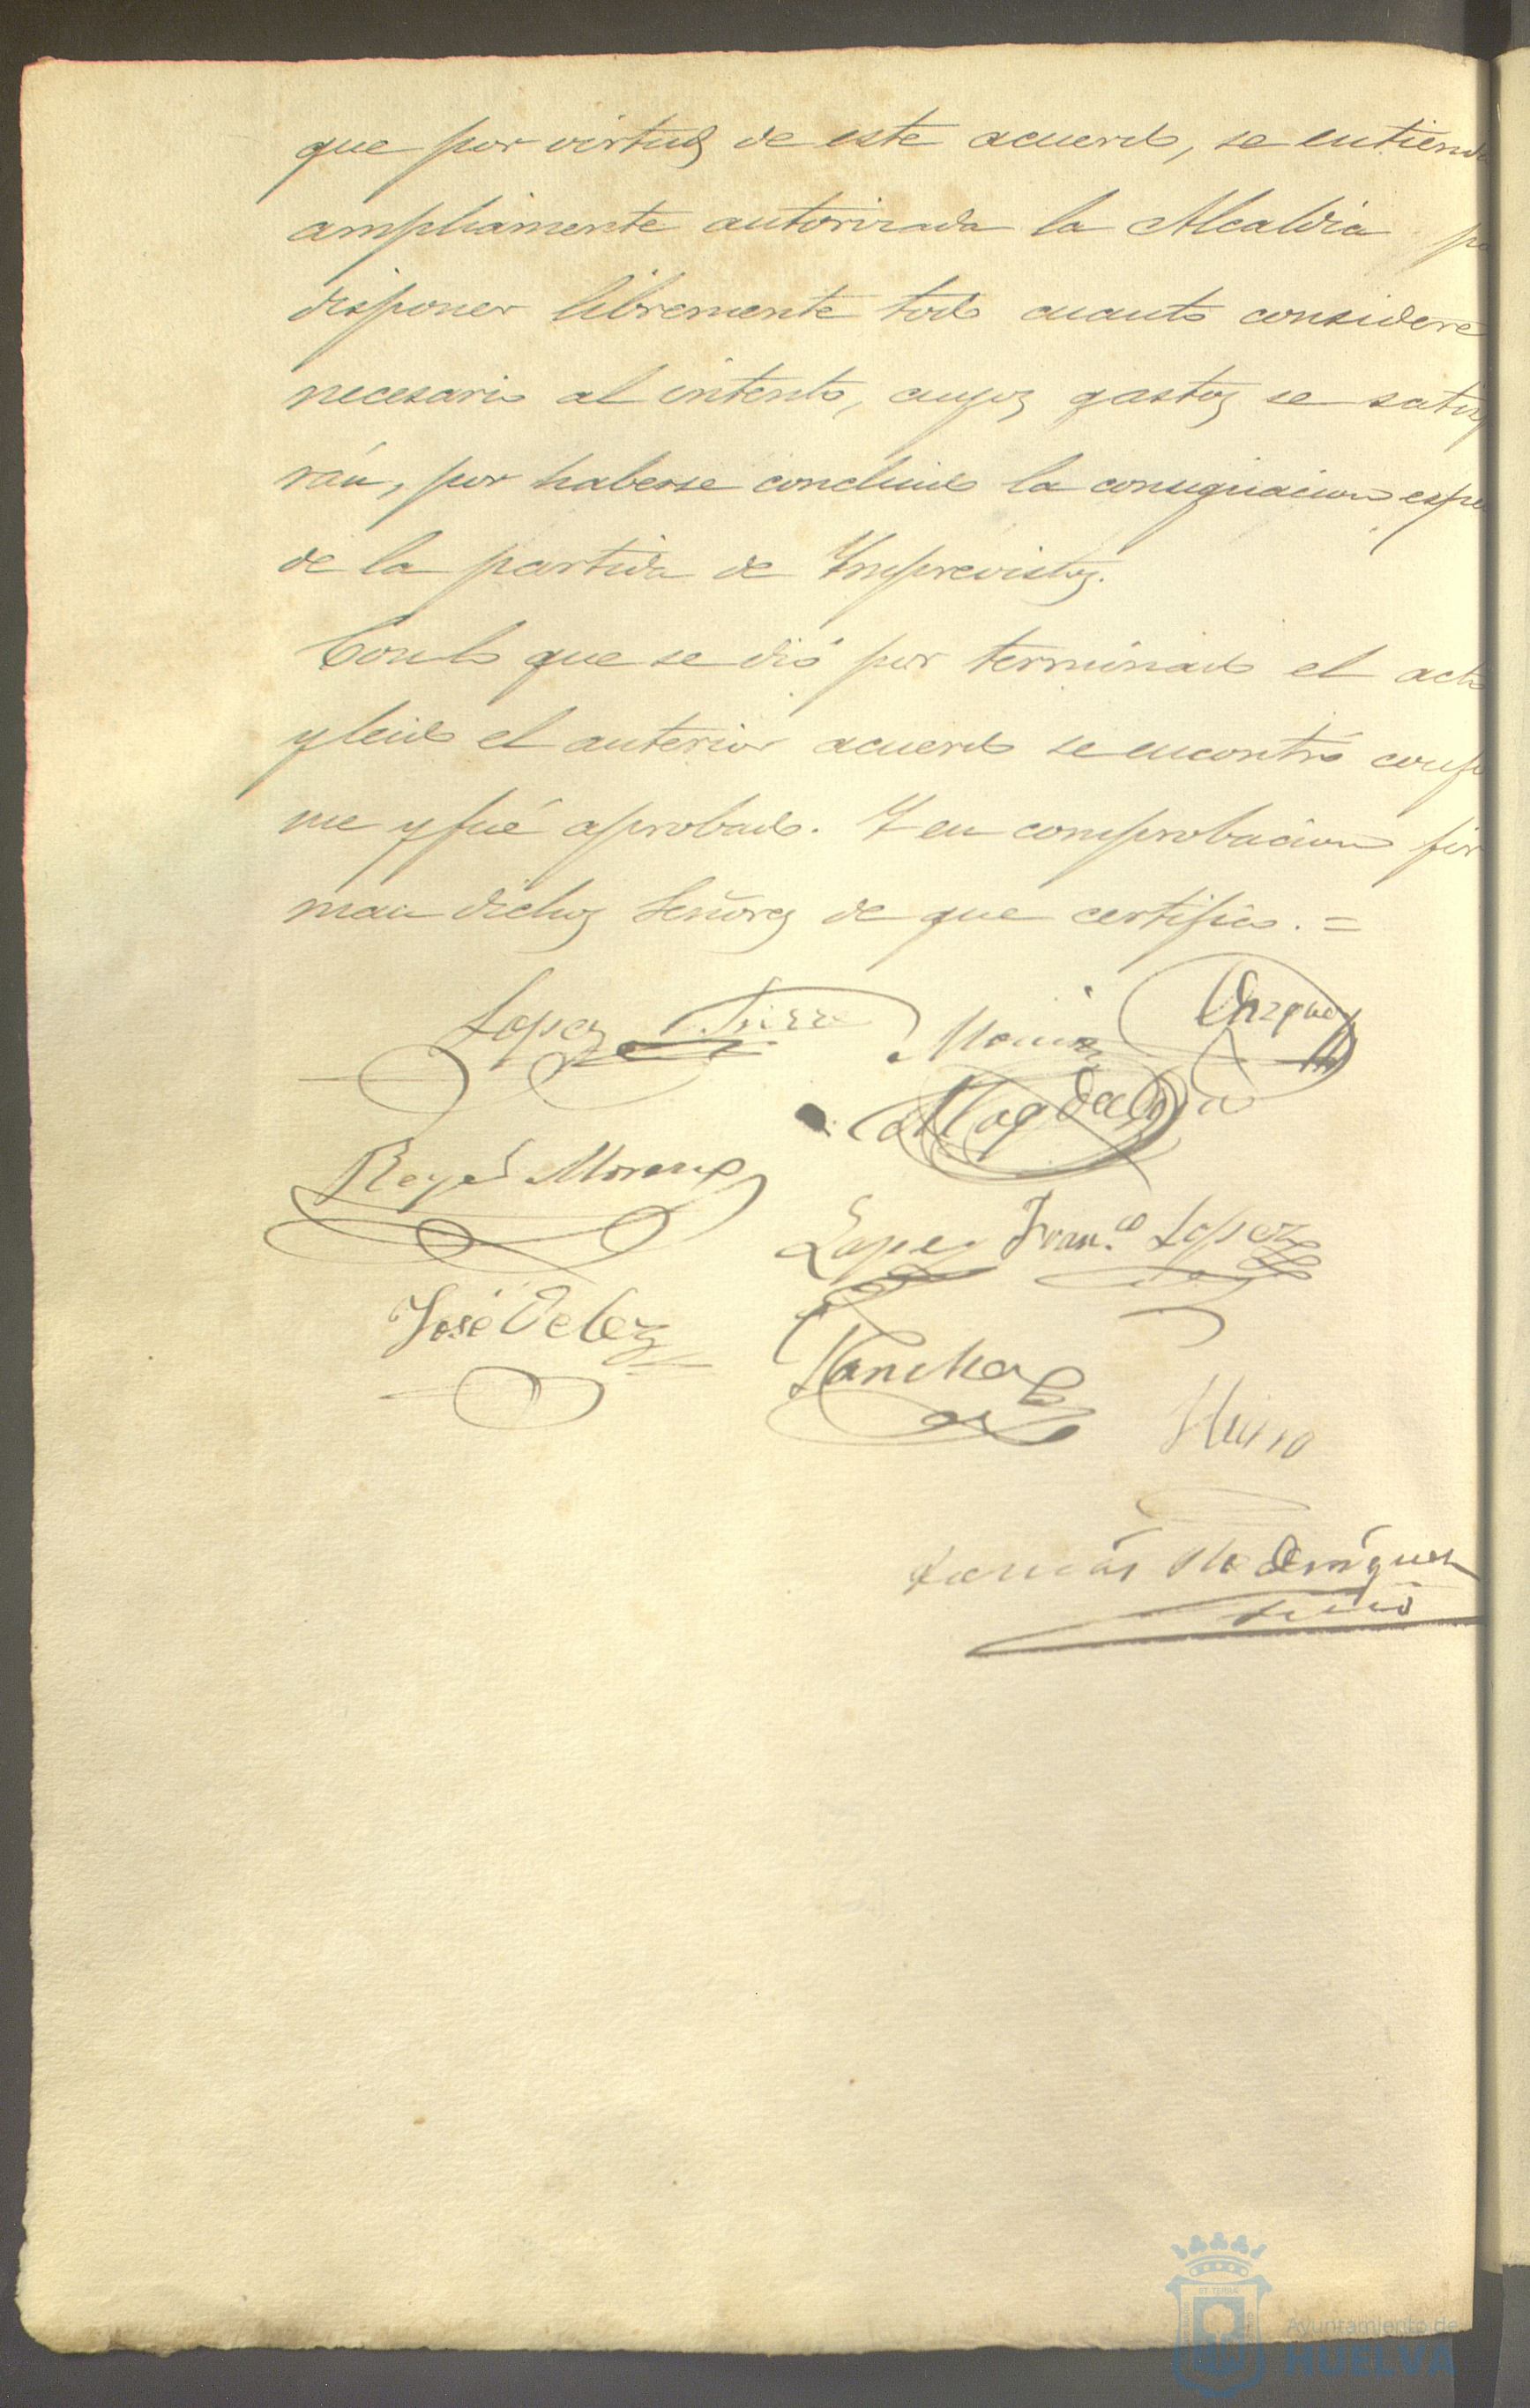 que por virtud de este acuerdo, se entiend
ampliamente autorizada la Alcaldia p
disponer libremente todo cuanto considere
necesario al intento, cuyos gastos se satisf
rán, por haberse concluido la consignacion espe
de la partida de Imprevistos.
Con lo que se dió por terminado el acto
y leido el anterior acuerdo se encontró confo
me y fué aprobado. Y en comprobacion fir
man dichos Señores de que certifico. =
Lopez Vazquez
Magdalena
Reyes Moreno
Lopez Fran.co Lopez
José Velez
Sanchez
Tomás Rodriguez
Srio
Ayuntamiento de
HUELVA